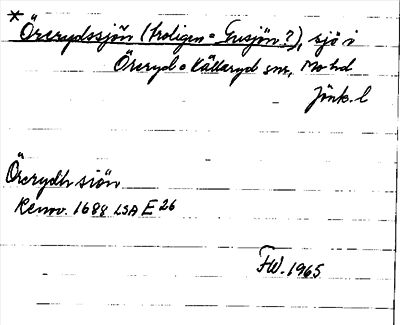 *Örerydssjön (troligen = Gusjön?), sjö i
Öreryd o Källeryd snr, Mo hd
Jönk. l
Örerydh siön
Renov. 1688 LSA E 26
FW. 1965